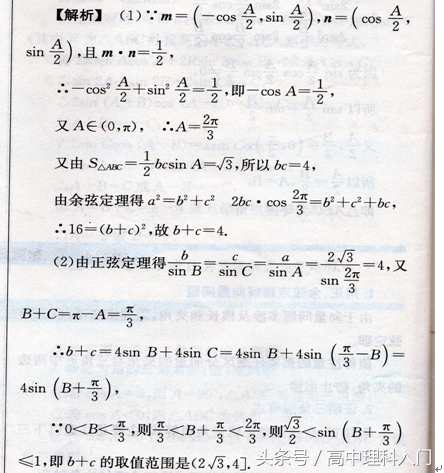 【解析】 (1)∵m=(-cos A/2,sin A/2),n=(cos A/2,
sin A/2),且 m·n=1/2,
∴-cos² A/2+sin² A/2=1/2,即-cos A=1/2,
又 A∈(0,π), ∴A=2π/3
又由 S△ABC=1/2 bcsin A=√3,所以 bc=4,
由余弦定理得 a²=b²+c² 2bc·cos 2π/3=b²+c²+bc,
∴16=(b+c)²,故 b+c=4.
(2)由正弦定理得 b/sin B=c/sin C a/sin A=2√3/sin 2π/3=4,又
B+C=π-A=π/3,
∴b+c=4sin B+4sin C=4sin B+4sin (π/3-B)=
4sin (B+π/3),
∵0<B<π/3,则π/3<B+π/3<2π/3,则√3/2<sin (B+π/3)
≤1,即 b+c 的取值范围是(2√3,4].
头条号/高中理科入门